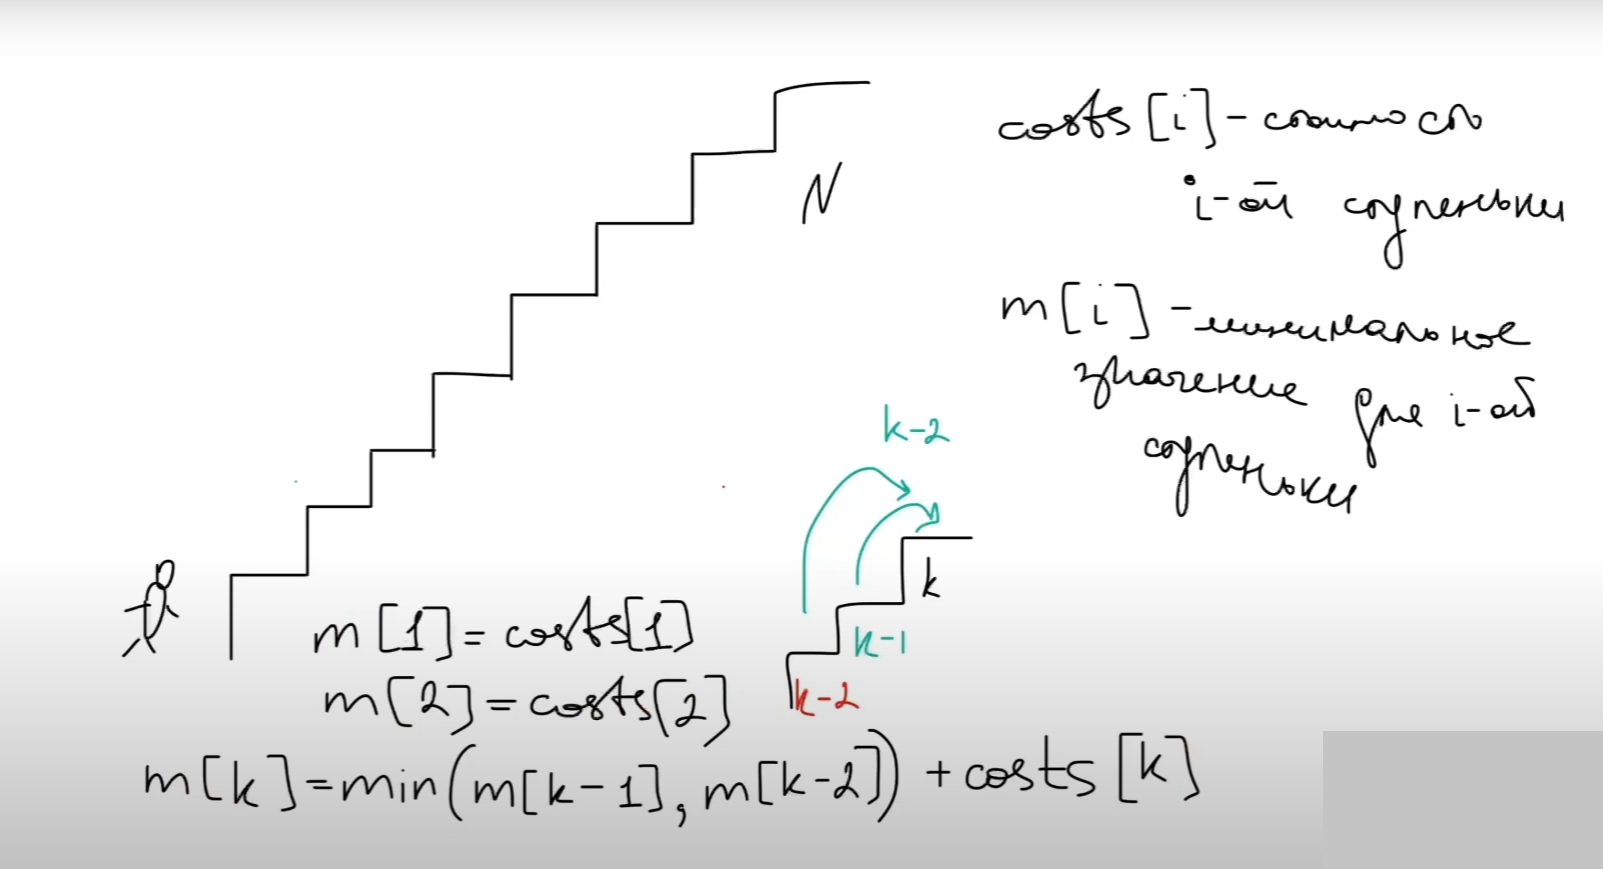 costs [i] - стоимость
i-ой ступеньки
N
m[i] - минимальное
значение для i-ой
ступеньки
k-2
k
k-1
k-2
m[1] = costs[1]
m[2] = costs[2]
m[k] = min(m[k-1], m[k-2]) + costs [k]